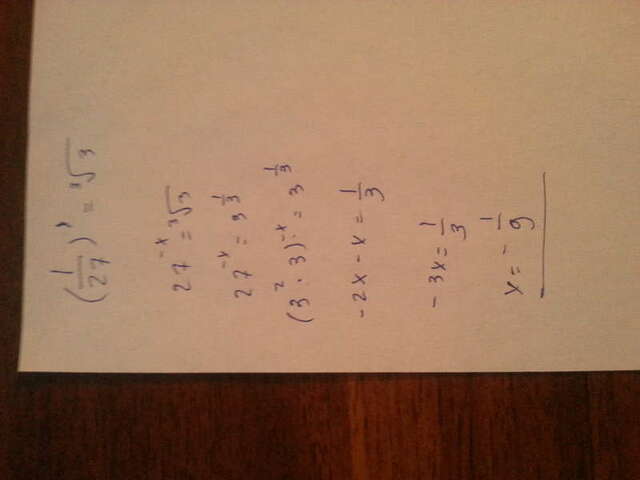 (1/27)ˣ = ³√3
27⁻ˣ = ³√3
27⁻ˣ = 3^(1/3)
(3² · 3)⁻ˣ = 3^(1/3)
-2x - x = 1/3
-3x = 1/3
x = - 1/9